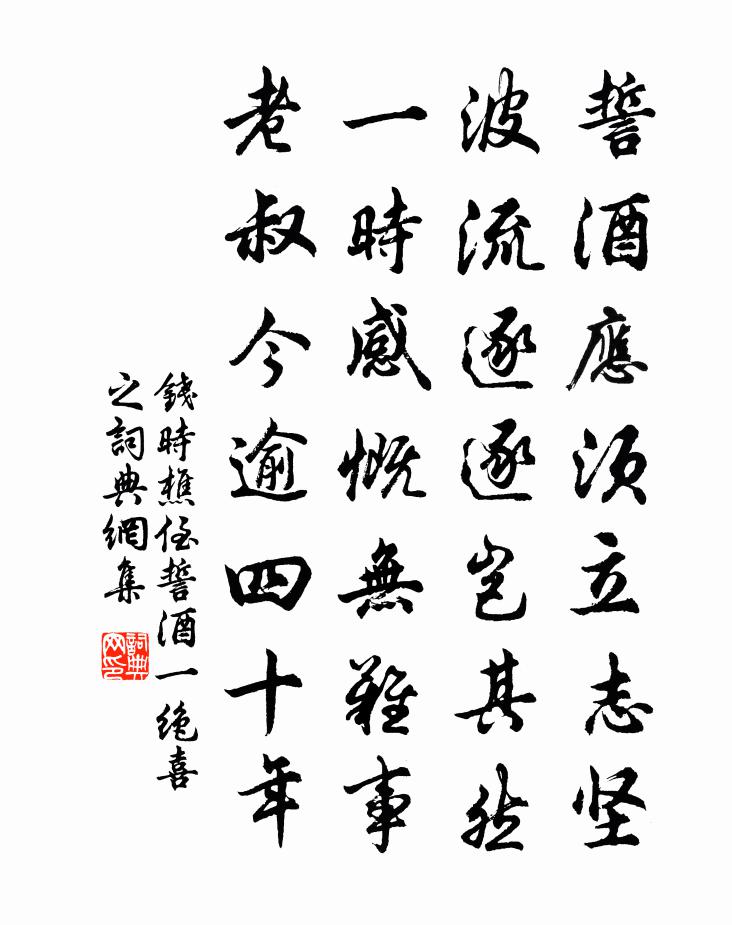 誓酒應須立志坚
波流逐逐岂其然
一時感慨無難事
老叔今逾四十年
錢時樵侄誓酒一絶喜
之詞典網集
詞典
网印